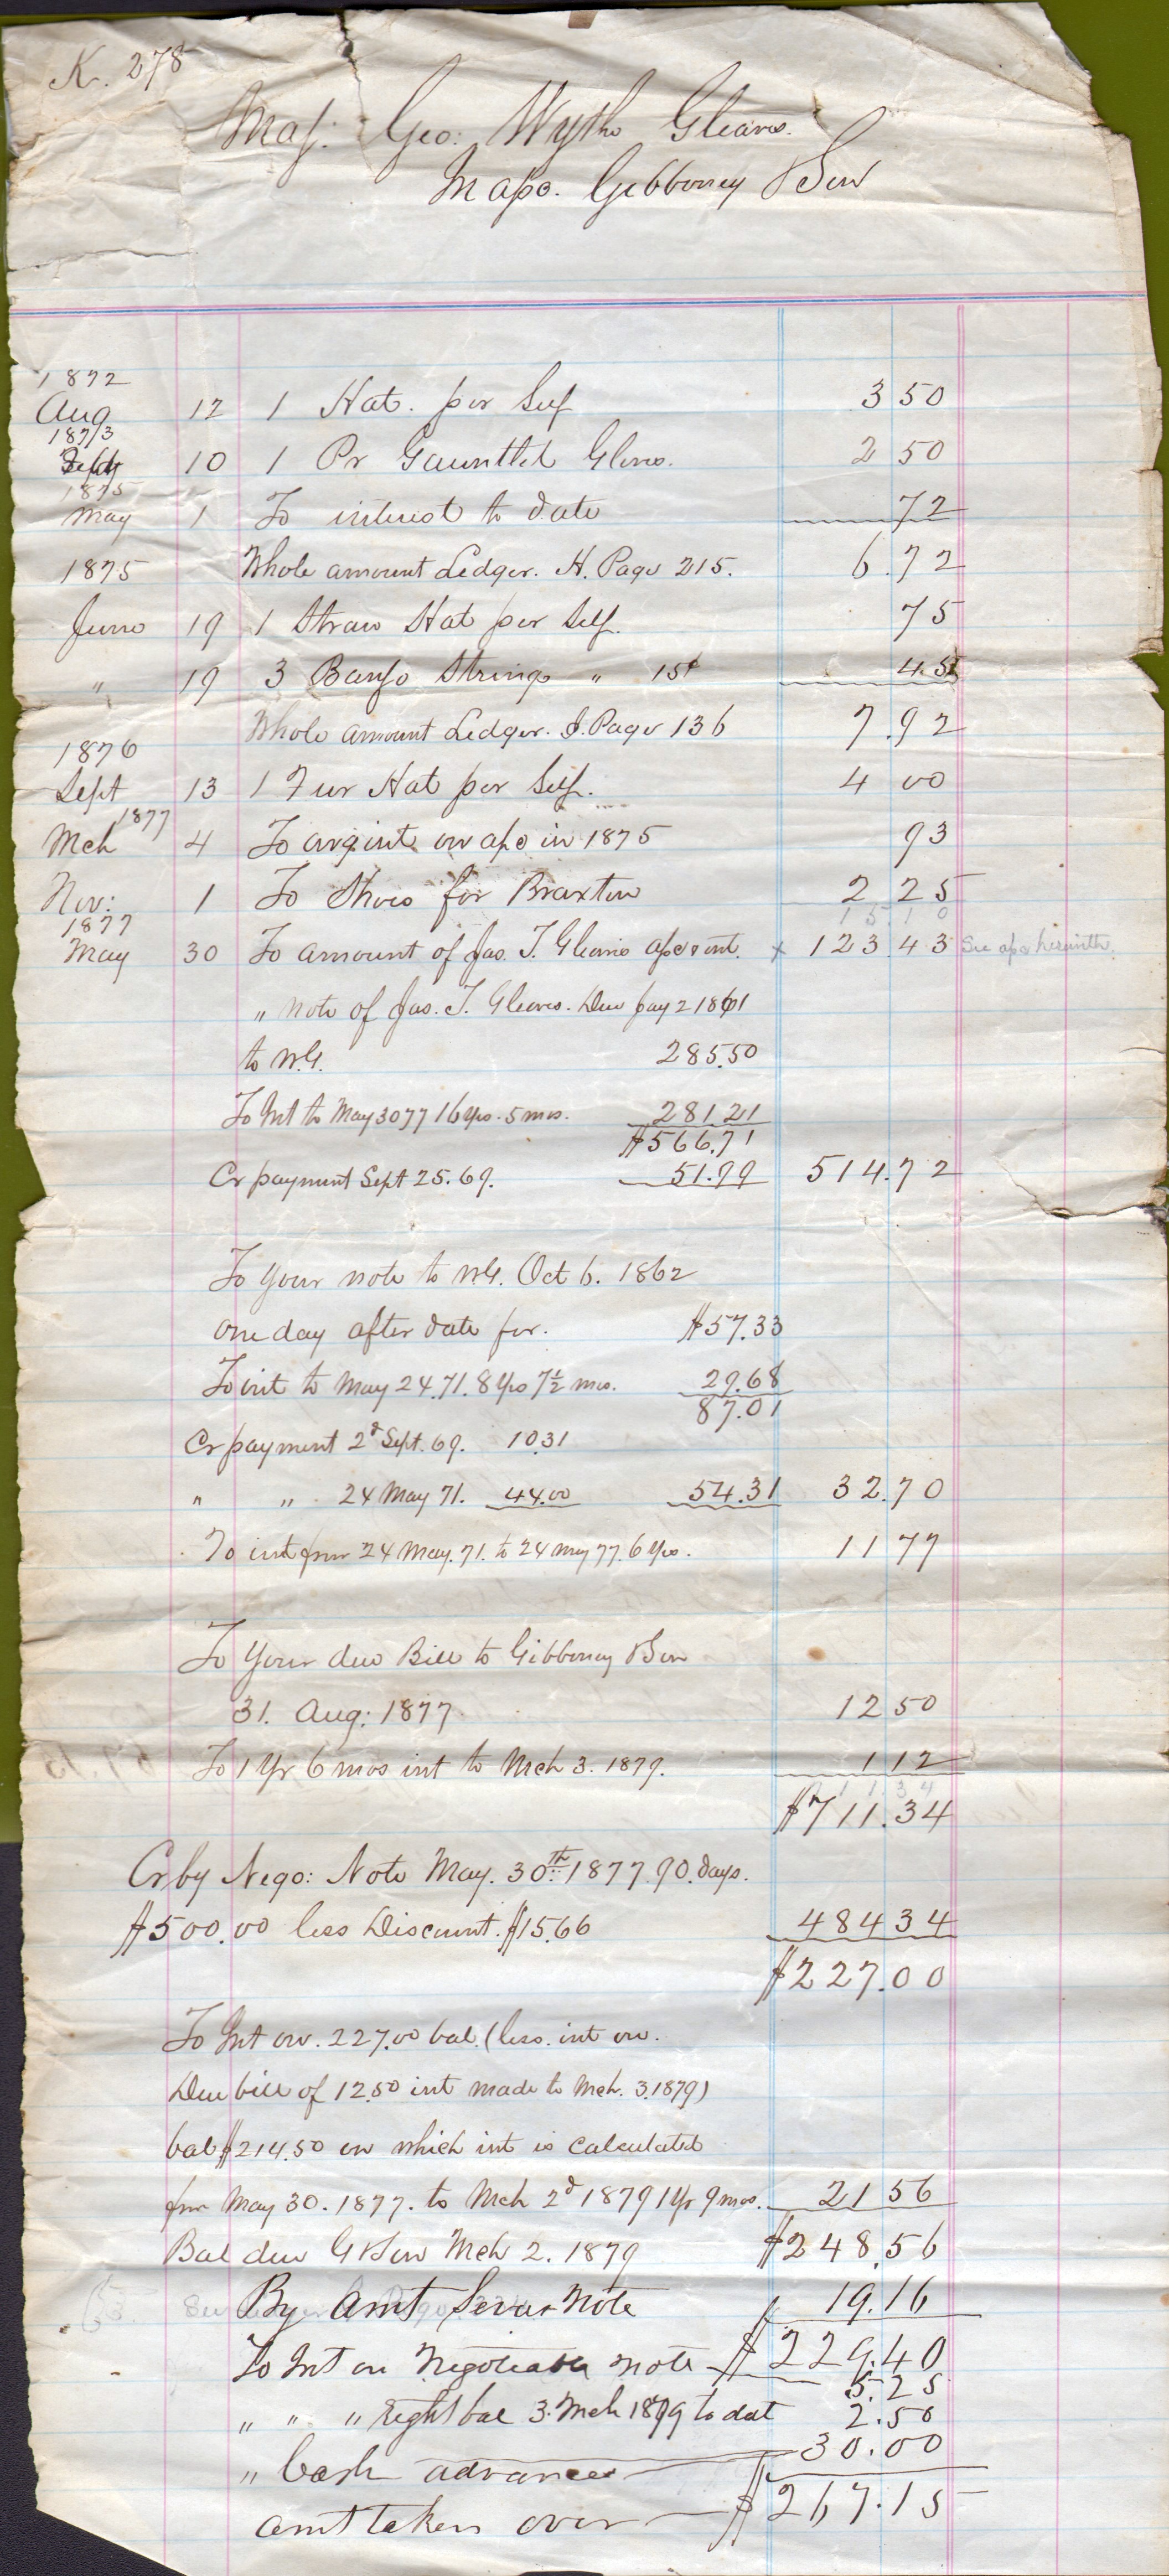 K. 278
Maj: Geo: Wythe Gleaves.
In a/c. Gibboney & Son
1872
Aug 12 1 Hat. per Self 3 50
1873
10 1 Pr Gauntlet Gloves. 2 50
1875
May 1 To interest to date 72
1875 Whole amount Ledger. H. Page 215. 6.72
June 19 1 Straw Hat per Self. 75
" 19 3 Banjo Strings " 15¢ 45
Whole amount Ledger. I. Page 136 7.92
1876
Sept 13 1 Fur Hat per Self. 4 00
1877
Mch 4 To avg int on a/c in 1875 93
Nov: 1 To Shoes for Braxton 2 25
15 10
1877
May 30 To amount of Jas. T. Gleaves a/c & int. x 123.43 See a/c herewith.
" note of Jas. T. Gleaves. Due Jany 2 1861
to W.G. 285.50
To Int to May 30 77 16 yrs. 5 mos. 281.21
$566.71
Cr payment Sept 25. 69. 51.99 514.72
To your note to W.G. Oct 6. 1862
one day after date for. $57.33
To int to May 24. 71. 8 yrs 7½ mos. 29.68
87.01
Cr payment 2d Sept. 69. 10.31
" " 24 May 71. 44.00 54.31 32.70
To int from 24 May. 71. to 24 May 77. 6 yrs. 11 77
To Your due Bill to Gibboney & Son
31. Aug: 1877. 12 50
To 1 Yr 6 mos int to Mch 3. 1879. 1 12
711.34
$711.34
Cr by Nego: Note May. 30th 1877. 90. days.
$500.00 less Discount. $15.66 484 34
$227.00
To Int on. 227.00 bal. (less. int on.
Due bill of 12.50 int made to Mch. 3. 1879)
bal $214.50 on which int is calculated
from May 30. 1877. to Mch 2d 1879 1 Yr 9 mos. 21 56
Bal due G & Son Mch 2. 1879 $248.56
By Amt Note 19.16
To Int on Negotiable note $229.40
5.25
" " " bal 3. Mch 1879 to dat 2.50
" Cash advanced 30.00
amt taken over $267.15